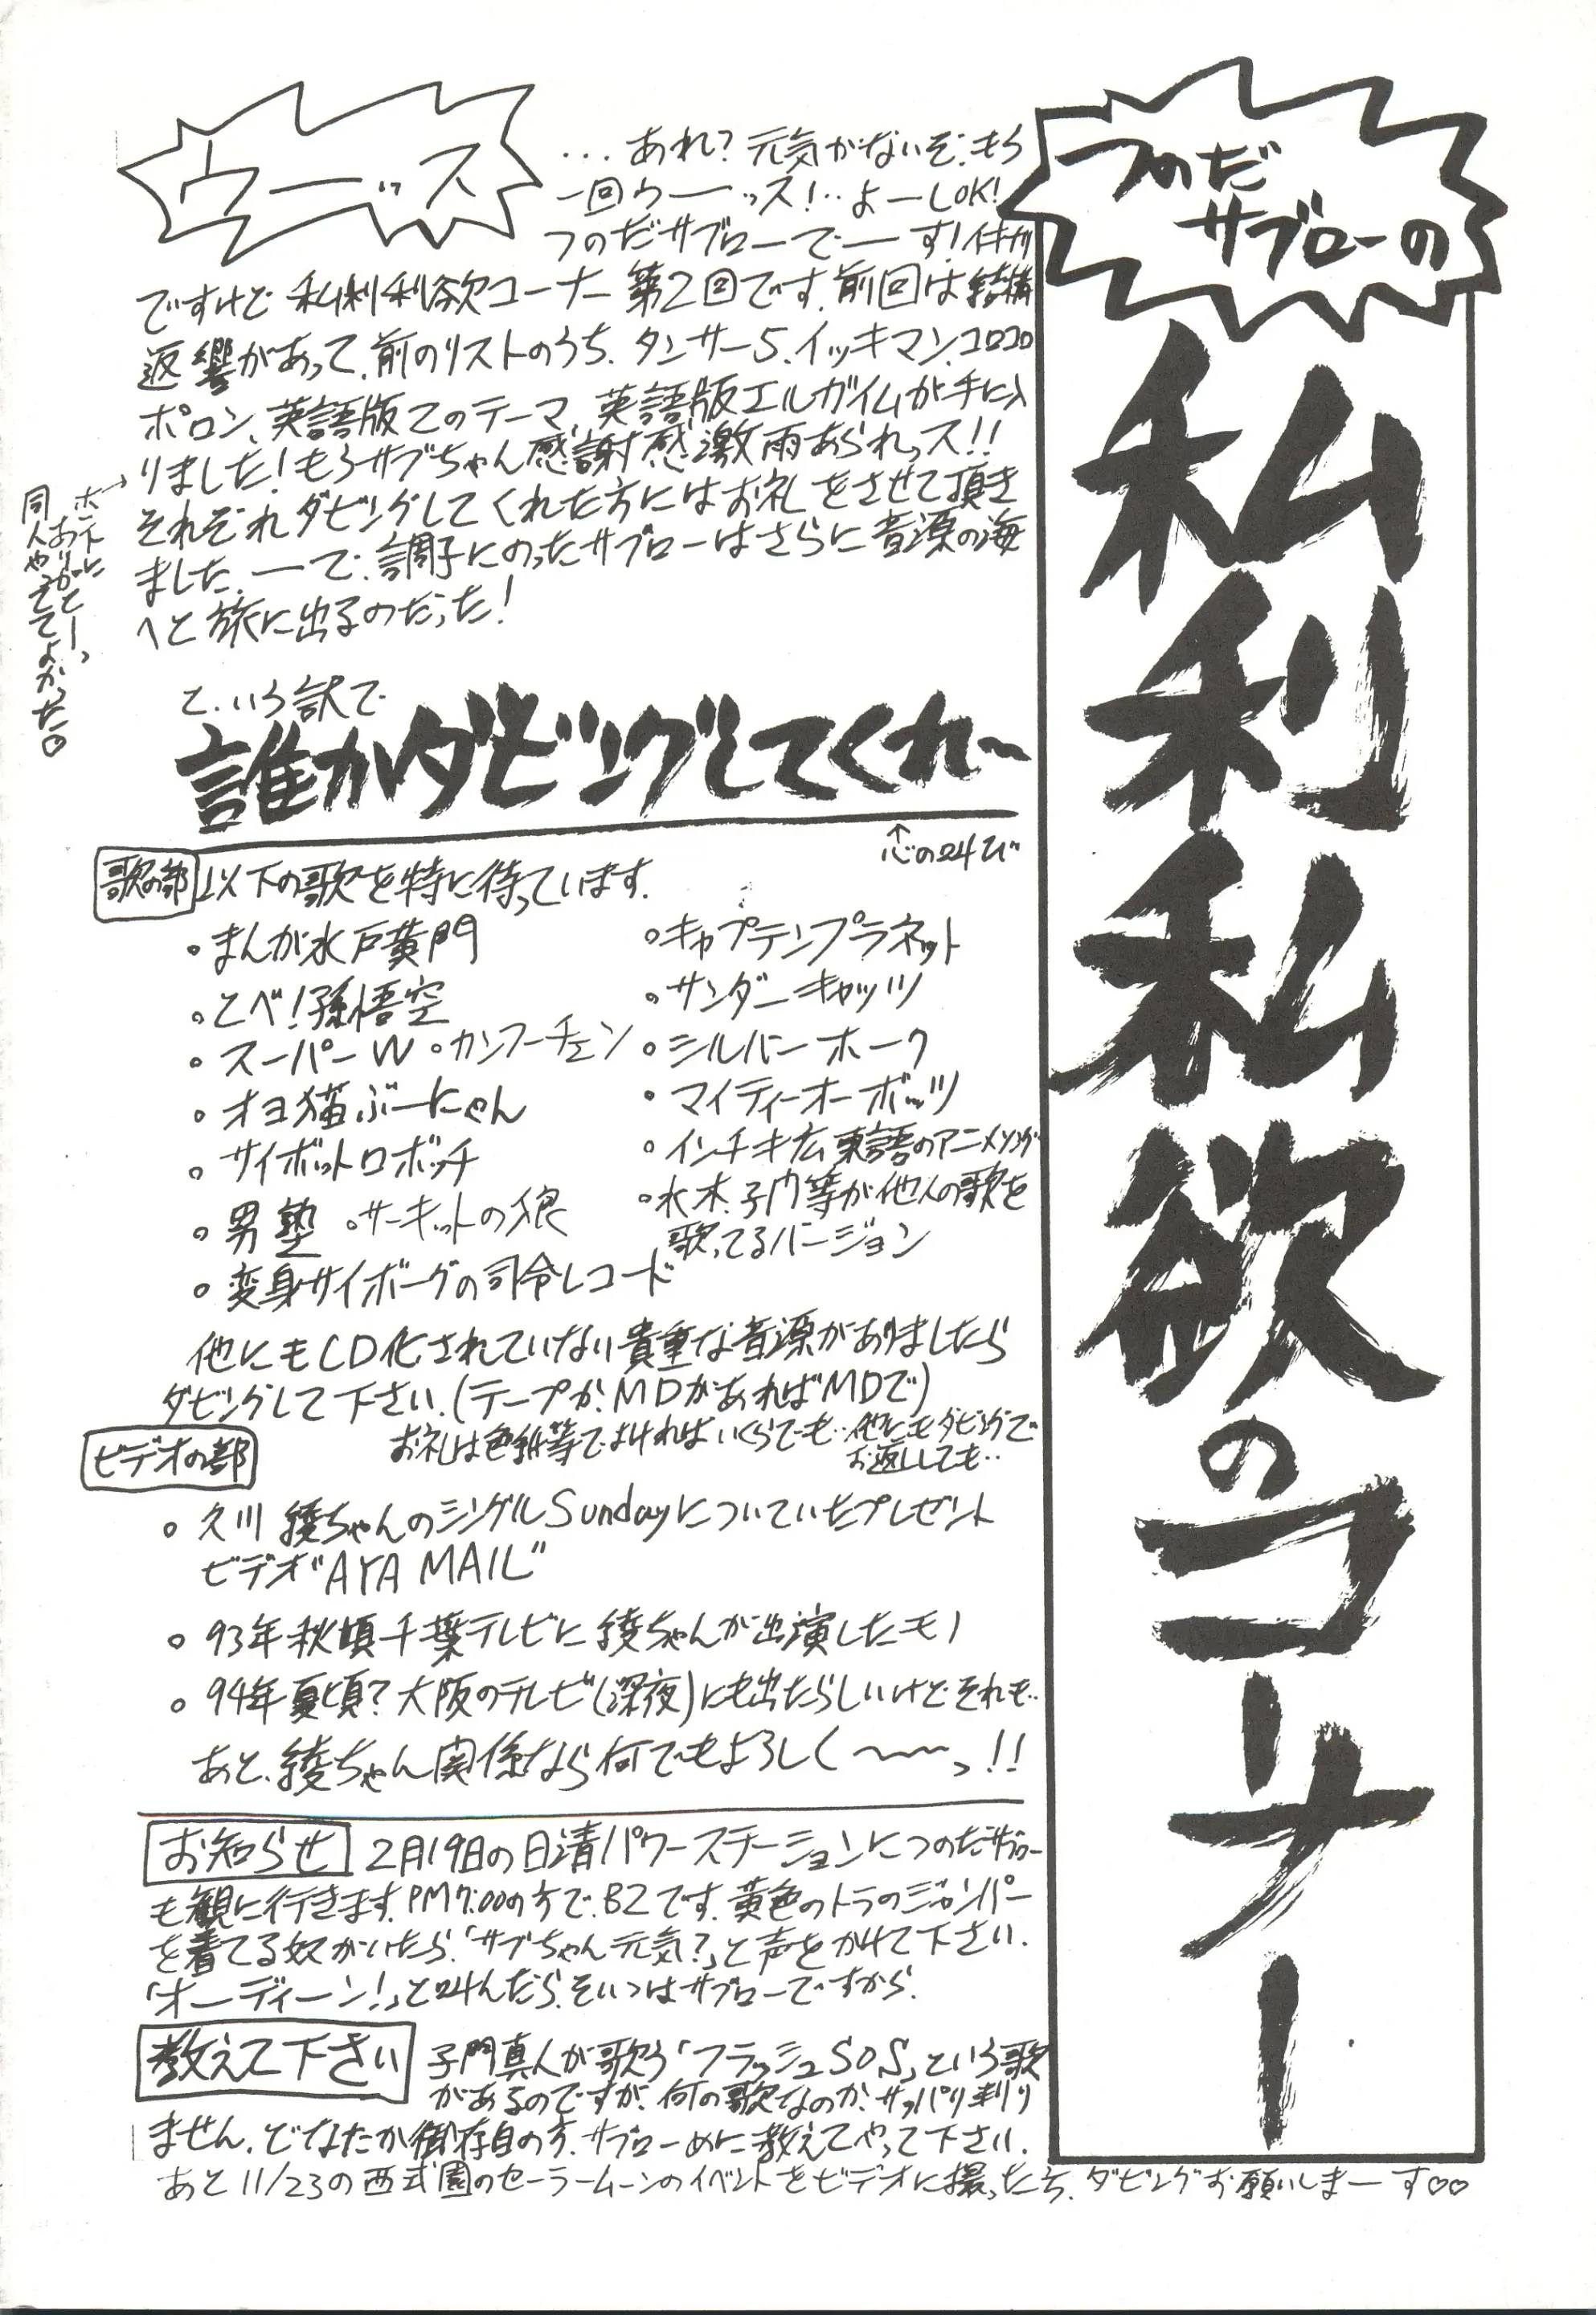 つのだ
サブローの
私利私欲のコーナー
ウーッス
...あれ?元気がないぞ、もう
一回ウーーッス!..よーしOK!
つのだサブローでーす!
ですけど私利私欲コーナー第2回です。前回は結構
返響があって、前のリストのうち、タンサー5、イッキマン、コロコロ
ポロン、英語版てのテーマ、英語版エルガイムが手に入
りました!もうサブちゃん感謝感激雨あられっス!!
それぞれダビングしてくれた方にはお礼をさせて頂き
ました。ーで、調子にのったサブローはさらに音源の海
へと旅に出るのだった!
ホントに
ありがとーっ
同人やっててよかった。
と、いう訳で
誰かダビングしてくれ〜
↑心の叫び
歌の部 以下の歌を特に待っています。
・まんが水戸黄門
・とべ!孫悟空
・スーパーW ・カンフーチェン
・オヨ猫ぶーにゃん
・サイボットロボッチ
・男塾 ・サーキットの狼
・変身サイボーグの司令レコード
・キャプテンプラネット
・サンダーキャッツ
・シルバーホーク
・マイティーオーボッツ
・インチキ広東語のアニメソング
・水木、子門等が他人の歌を
歌ってるバージョン
他にもCD化されていない貴重な音源がありましたら
ダビングして下さい。(テープか、MDがあればMDで)
お礼は色紙等でよければいくらでも..他にもダビングで
お返ししても..
ビデオの部
・久川綾ちゃんのシングルSundayについていたプレゼント
ビデオ"AYA MAIL"
・93年秋頃千葉テレビに綾ちゃんが出演したモノ
・94年夏頃?大阪のテレビ(深夜)にも出たらしいけどそれも..
あと、綾ちゃん関係なら何でもよろしく〜〜〜っ!!
お知らせ 2月19日の日清パワーステーションにつのだサブロー
も観に行きます。PM7:00の方で、B2です。黄色のトラのジャンパー
を着てる奴がいたら、「サブちゃん元気?」と声をかけて下さい。
「オーディーン!」と叫んだら、そいつはサブローですから。
教えて下さい 子門真人が歌う「フラッシュSOS」という歌
があるのですが、何の歌なのか、サッパリ判り
ません。どなたか御存自の方、サブローめに教えてやって下さい。
あと11/23の西武園のセーラームーンのイベントをビデオに撮った方、ダビングお願いしまーす♡♡